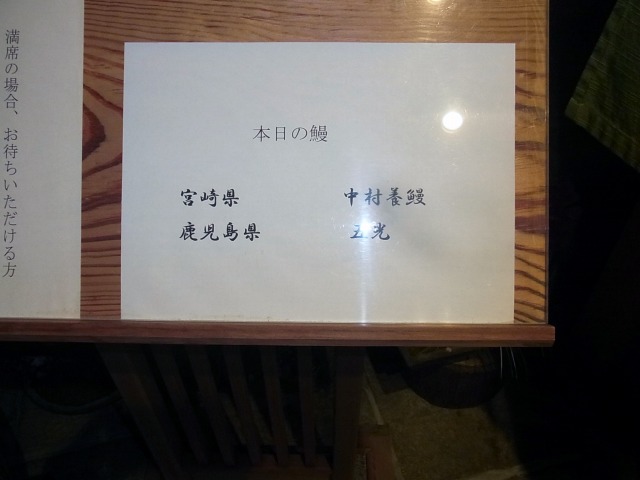 本日の鰻
宮崎県 中村養鰻
鹿児島県 五光
満席の場合、お待ちいただける方